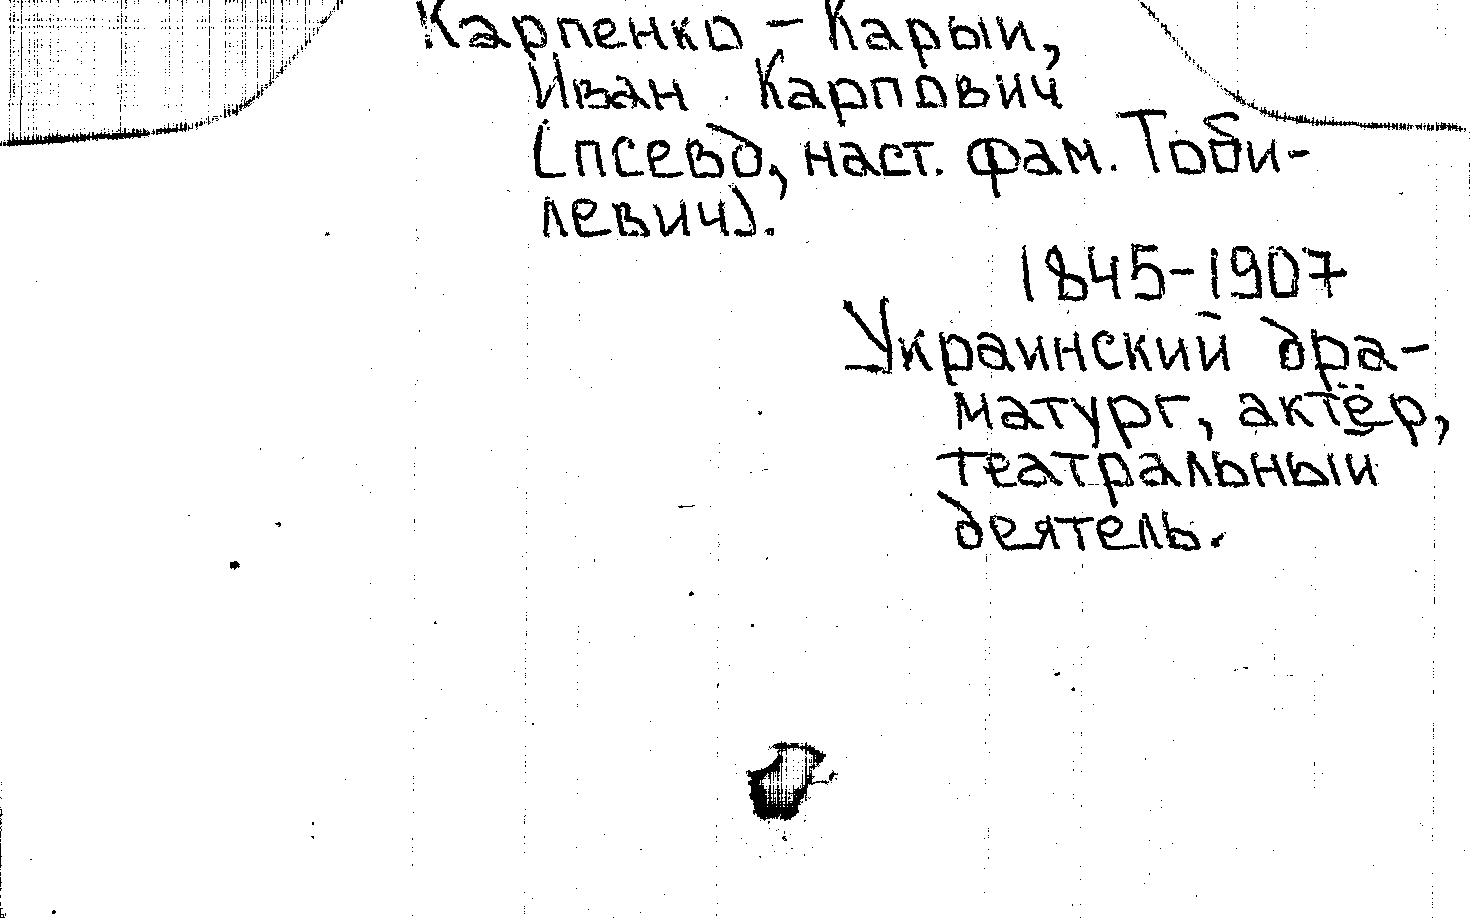 Карпенко - Карый,
Иван Карпович
(псевд, наст. фам. Тоби-
левич).
1845-1907
Украинский дра-
матург, актёр,
театральный
деятель.